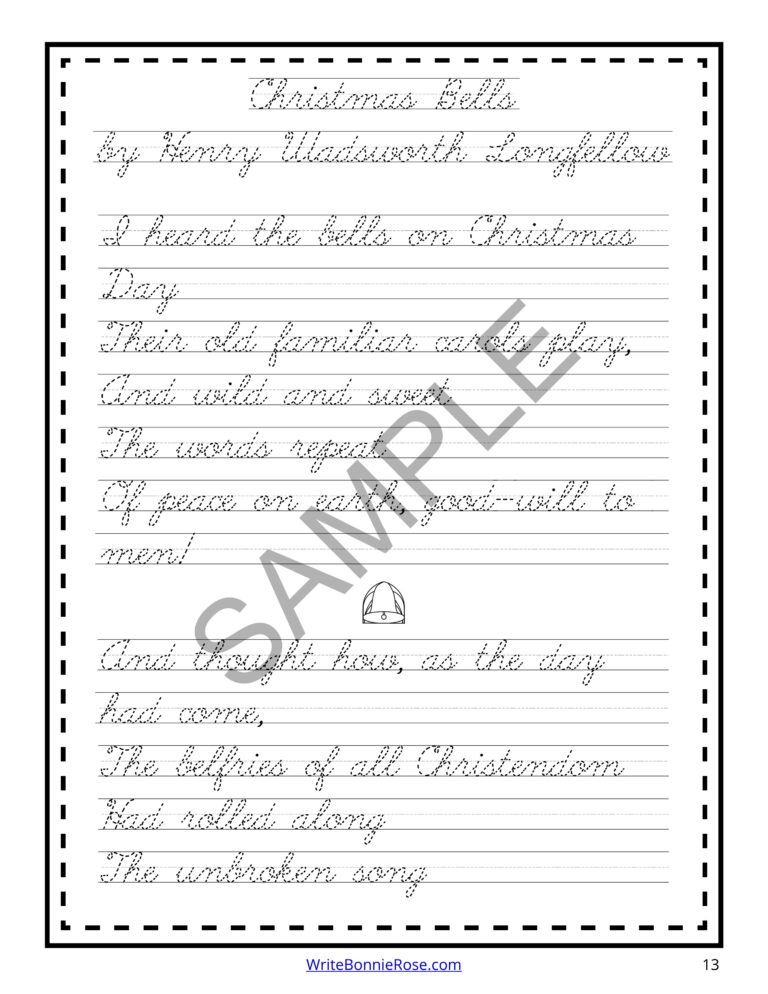 Christmas Bells
by Henry Wadsworth Longfellow
I heard the bells on Christmas
Day
Their old familiar carols play,
And wild and sweet
The words repeat
Of peace on earth, good-will to
men!
SAMPLE
And thought how, as the day
had come,
The belfries of all Christendom
Had rolled along
The unbroken song
WriteBonnieRose.com
13